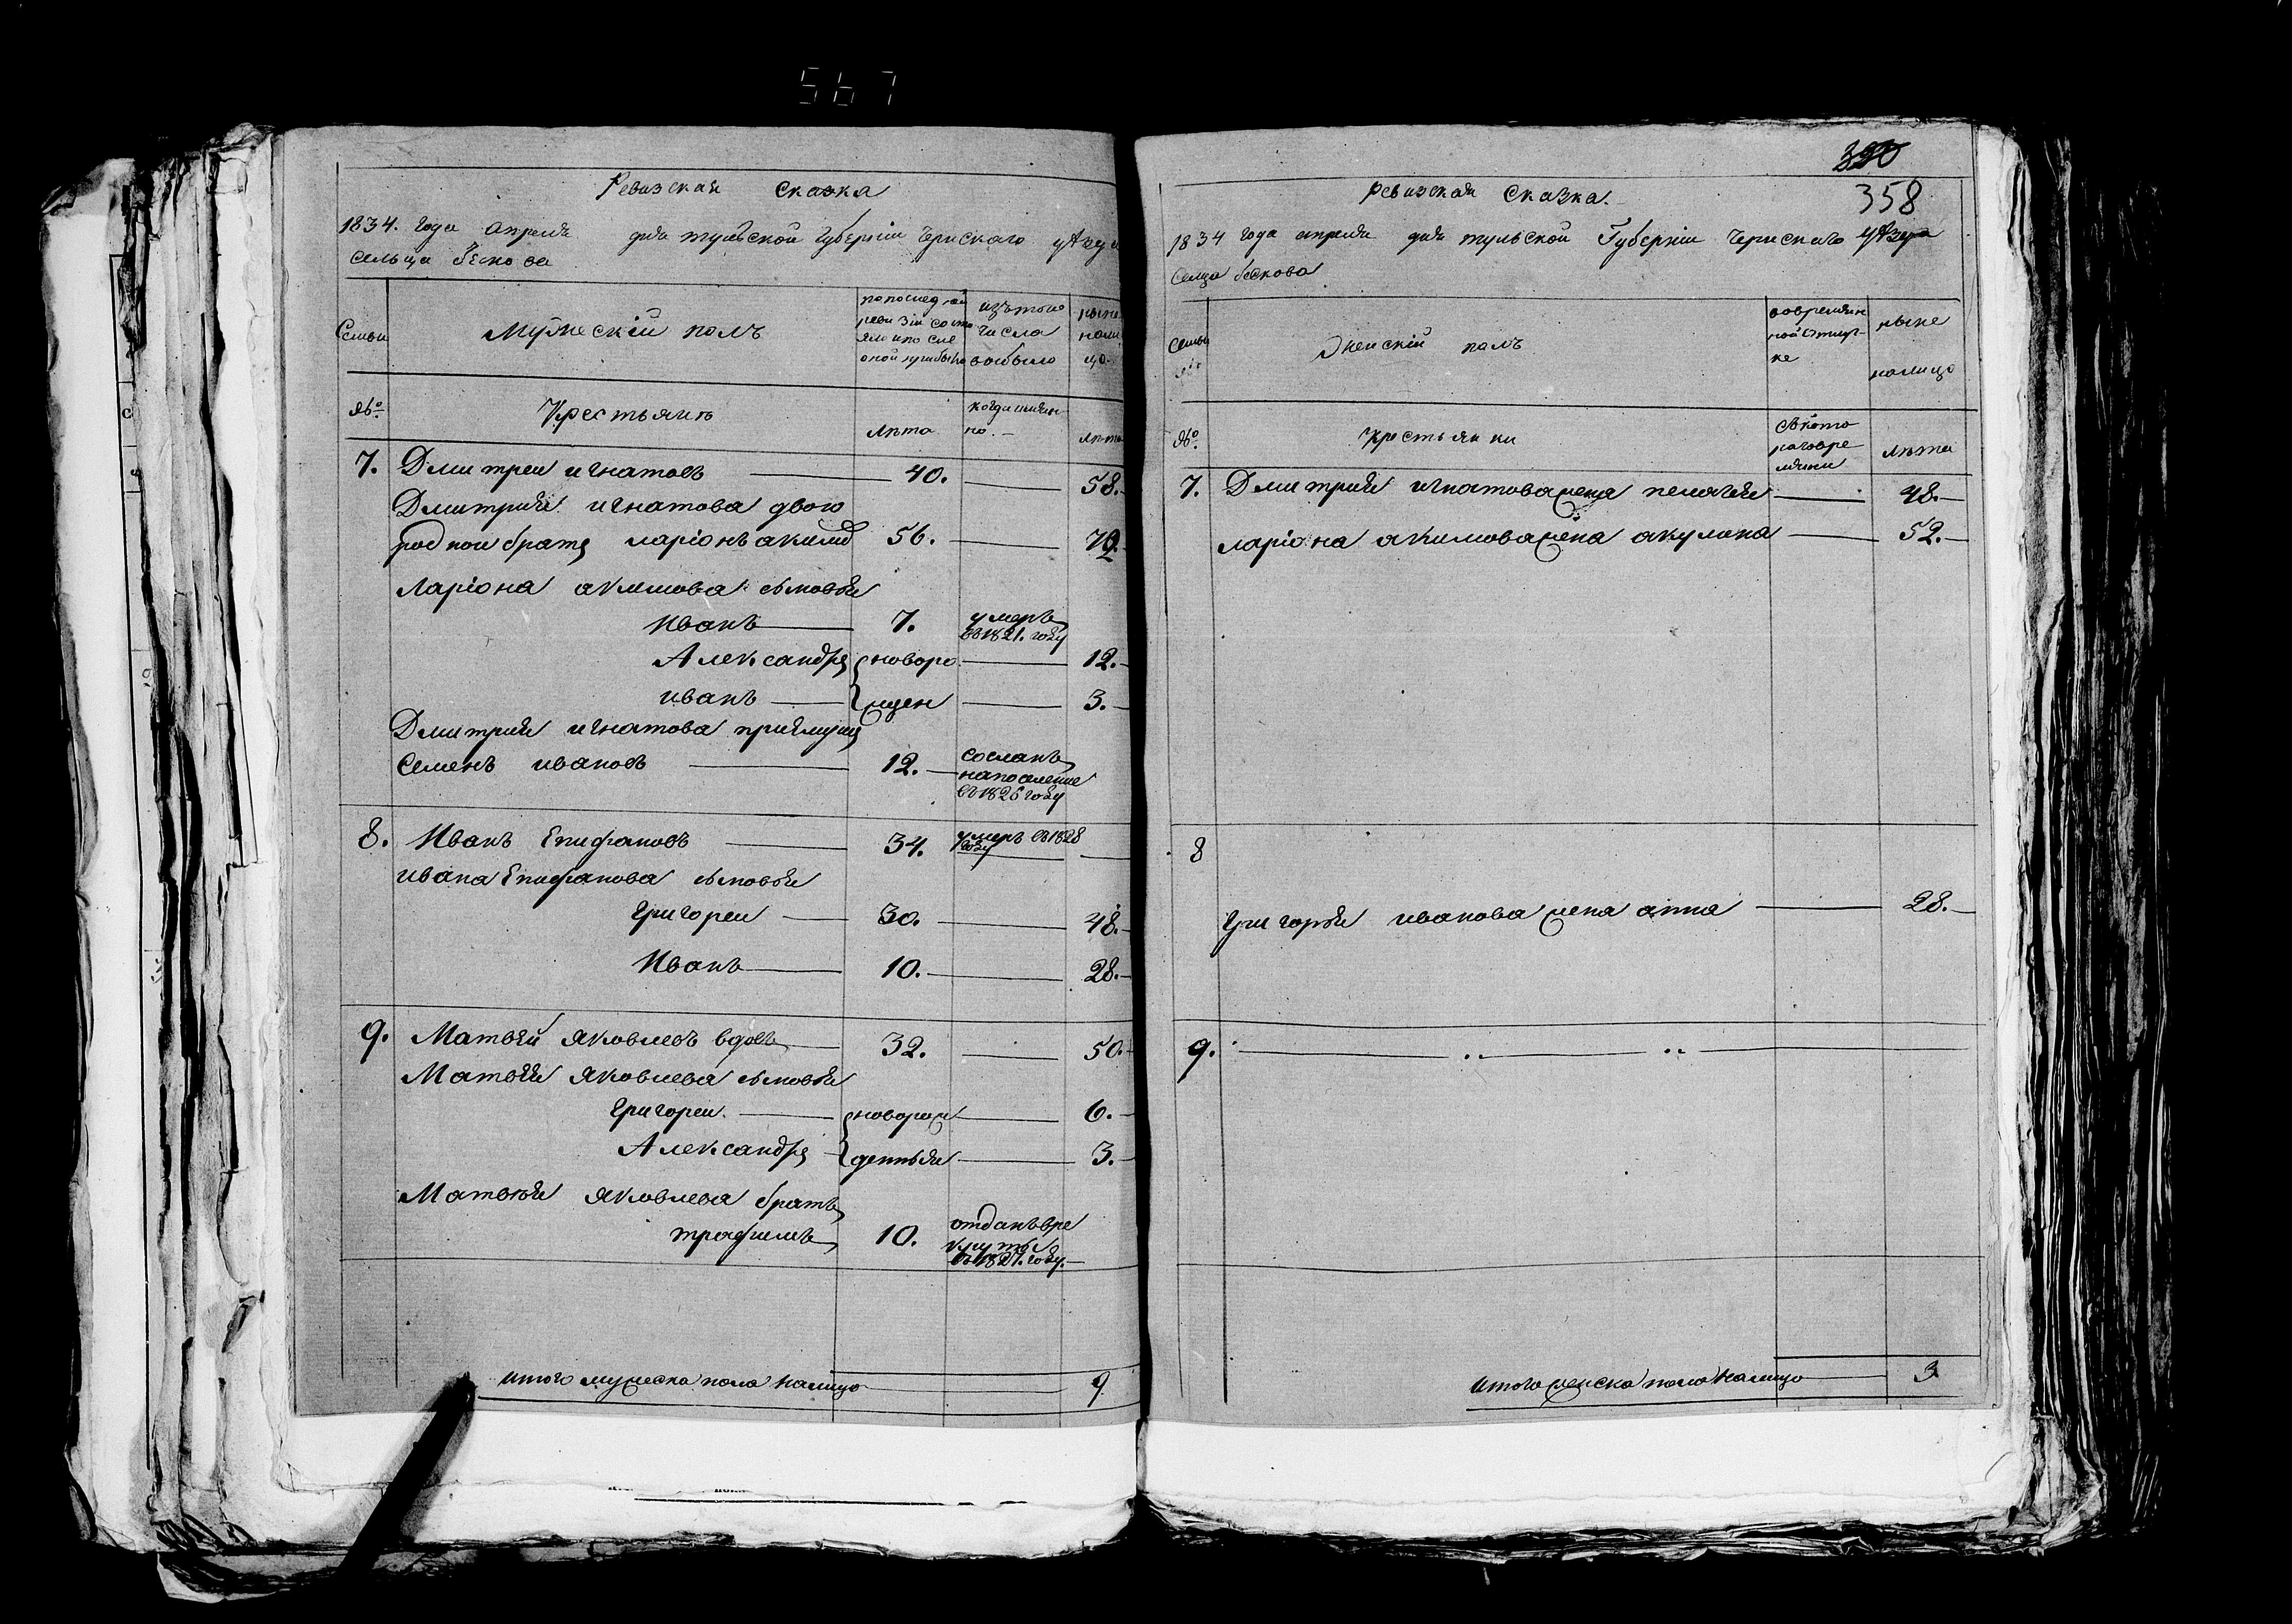 567
Ревизская Сказка
1834. года апреля дня тульской Губернiи Чернскаго уѣзда
Сельца Бѣскова
Семьи
Мужескiй полъ
по последней
ревизiи состо
яло и после
оной прибыло
изътого
числа
выбыло
ныне
нали
цо
№
Крестьянъ
лѣта
когда имян
но.
лѣта
7. Дмитреи игнатовъ 40. 58.
Дмитрия игнатова двою
родной братъ ларiонъ акимо 56.
Ларiона акимова сыновья
Иванъ 7. умеръ
въ 1821. году
Александръ новоро 12.
иванъ жден 3.
Дмитрия игнатова приімышъ
Семенъ ивановъ 12. Сосланъ
на поселение
въ 1826 году
8. Иванъ Епифановъ 34. умеръ въ 1828
году
ивана Епифанова сыновья
Григореи 30. 48.
Иванъ 10. 28.
9. Матвѣй Яковлевъ вдовъ 32. 50.
Матвѣя Яковлева сыновья
Григореи новорож 6.
Александръ денныя 3.
Матвѣя Яковлева братъ
трафимъ 10. отданъ в ре
круты
въ 1821. году.
итого мужеска пола налицо 9
358
Ревизская Сказка.
1834 года апреля дня тульской Губернiи Чернскаго уѣзда
Селца бѣскова
Семьи
Женскiй полъ
вовремян
ной отлуч-
ке
ныне
налицо
№
Крестьянки
съ кото
раго вре
мяни
лѣта
7. Дмитрия игнатова жена пелагея 48.
ларiона акимова жена акулина 52.
8
Григорья иванова жена анна 28.
9.
итого женска пола налицо 3